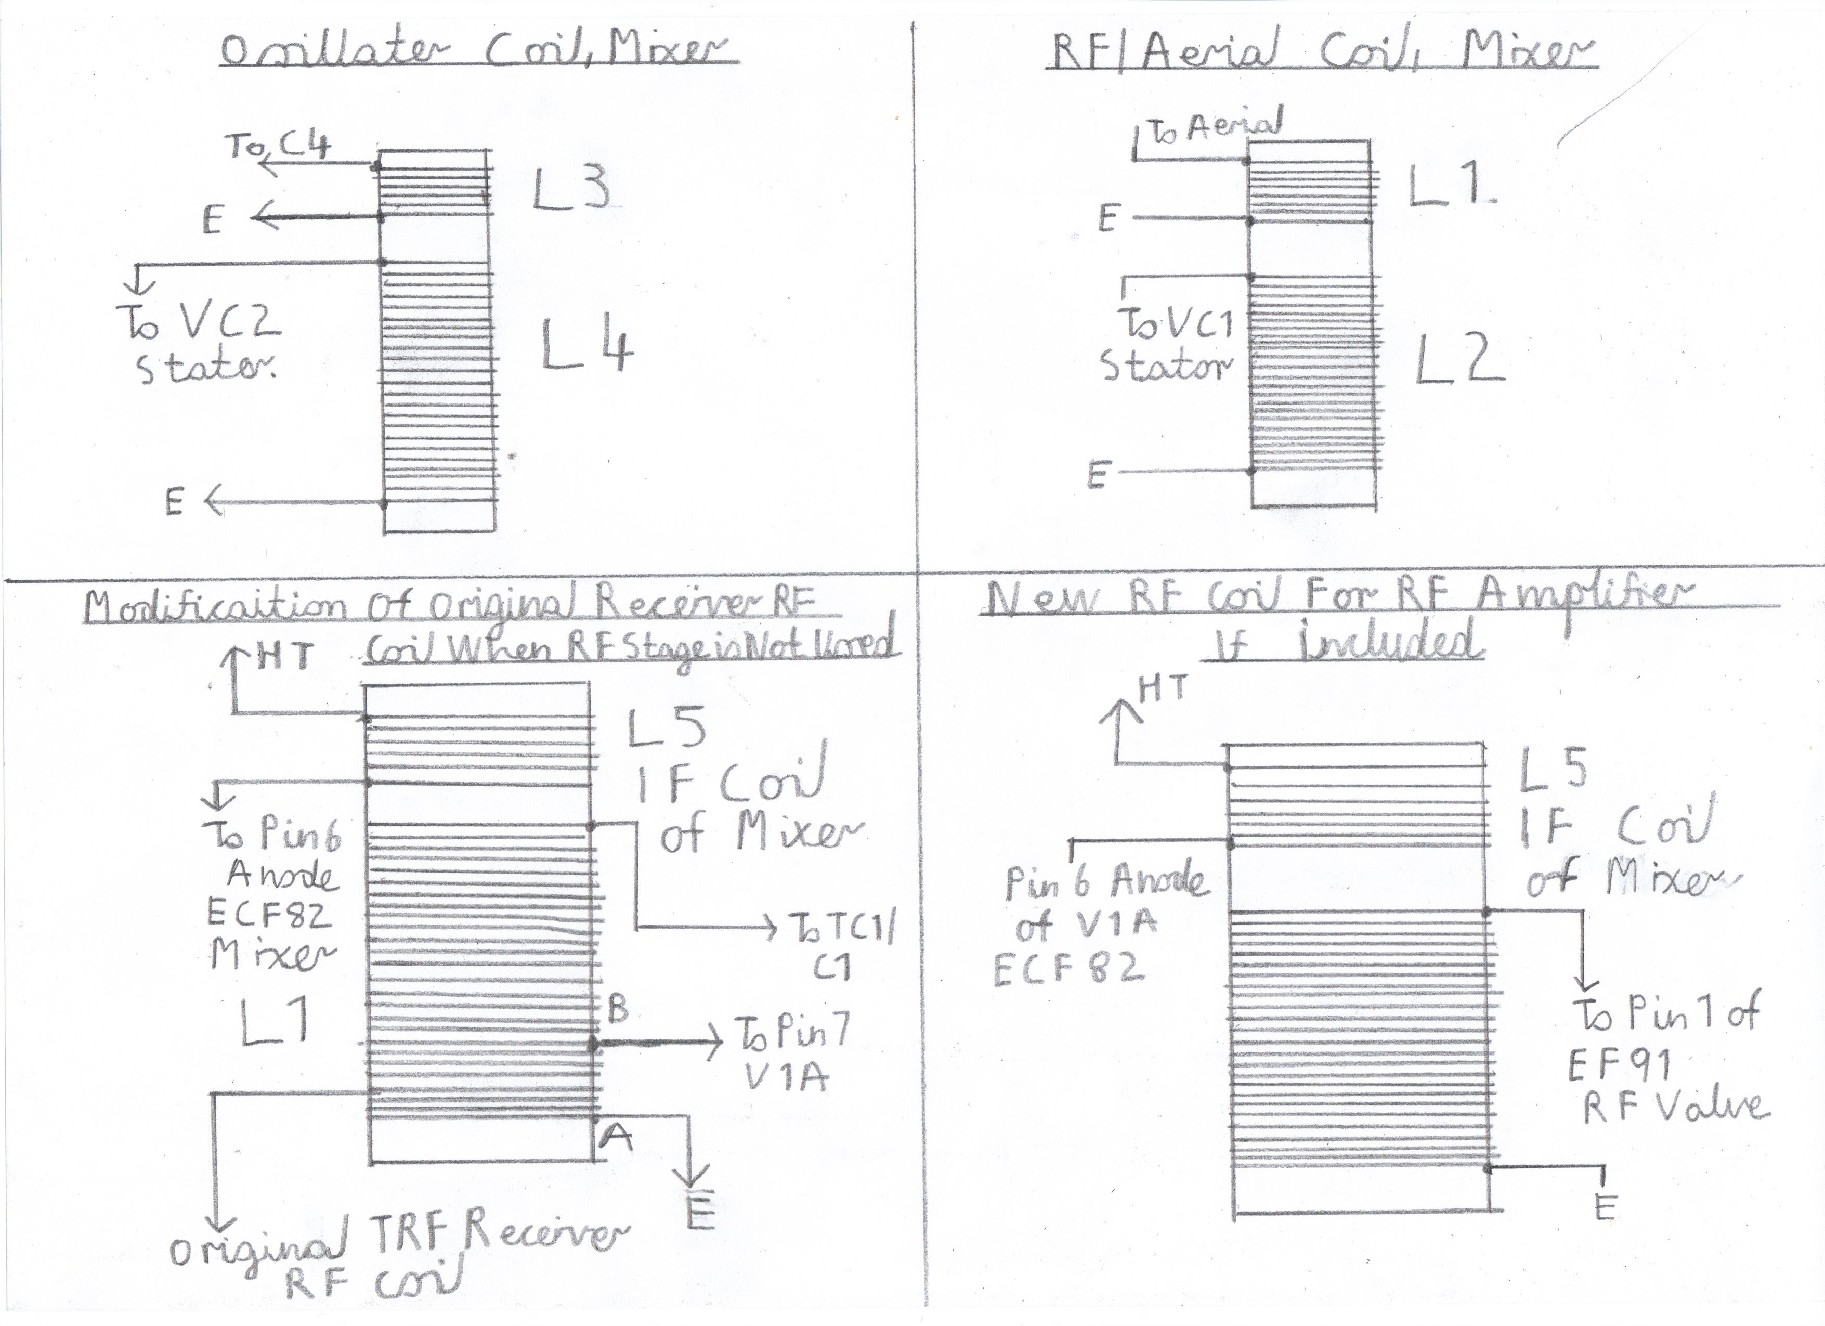 Osillater Coil, Mixer
To C4
L3
E
To VC2
Stator.
L4
E
RF/Aerial Coil, Mixer
To Aerial
L1
E
To VC1
Stator
L2
E
Modificaition Of Original Receiver RF
Coil When RF Stage is Not Used
HT
L5
IF Coil
of Mixer
To Pin 6
Anode
ECF82
Mixer
To TC1/
C1
L1
B
To Pin 7
V1A
A
E
Original TRF Receiver
RF Coil
New RF Coil For RF Amplifier
If included
HT
L5
IF Coil
of Mixer
Pin 6 Anode
of V1A
ECF82
To Pin 1 of
EF91
RF Valve
E